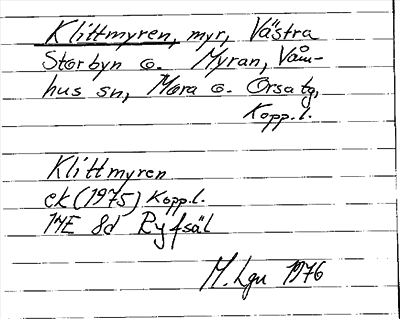 Klittmyren, myr, Västra
Storbyn o. Myran, Våm-
hus sn, Mora o. Orsa tg,
Kopp.l.
Klittmyren
ek (1975) Kopp.l.
14E 8d Ryfsäl
M. Lgn 1976